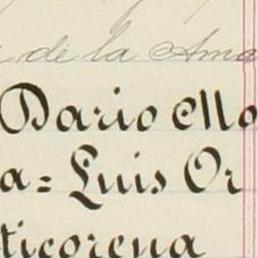 de la Ama
Dario Mo
a=Luis Or
ticorena